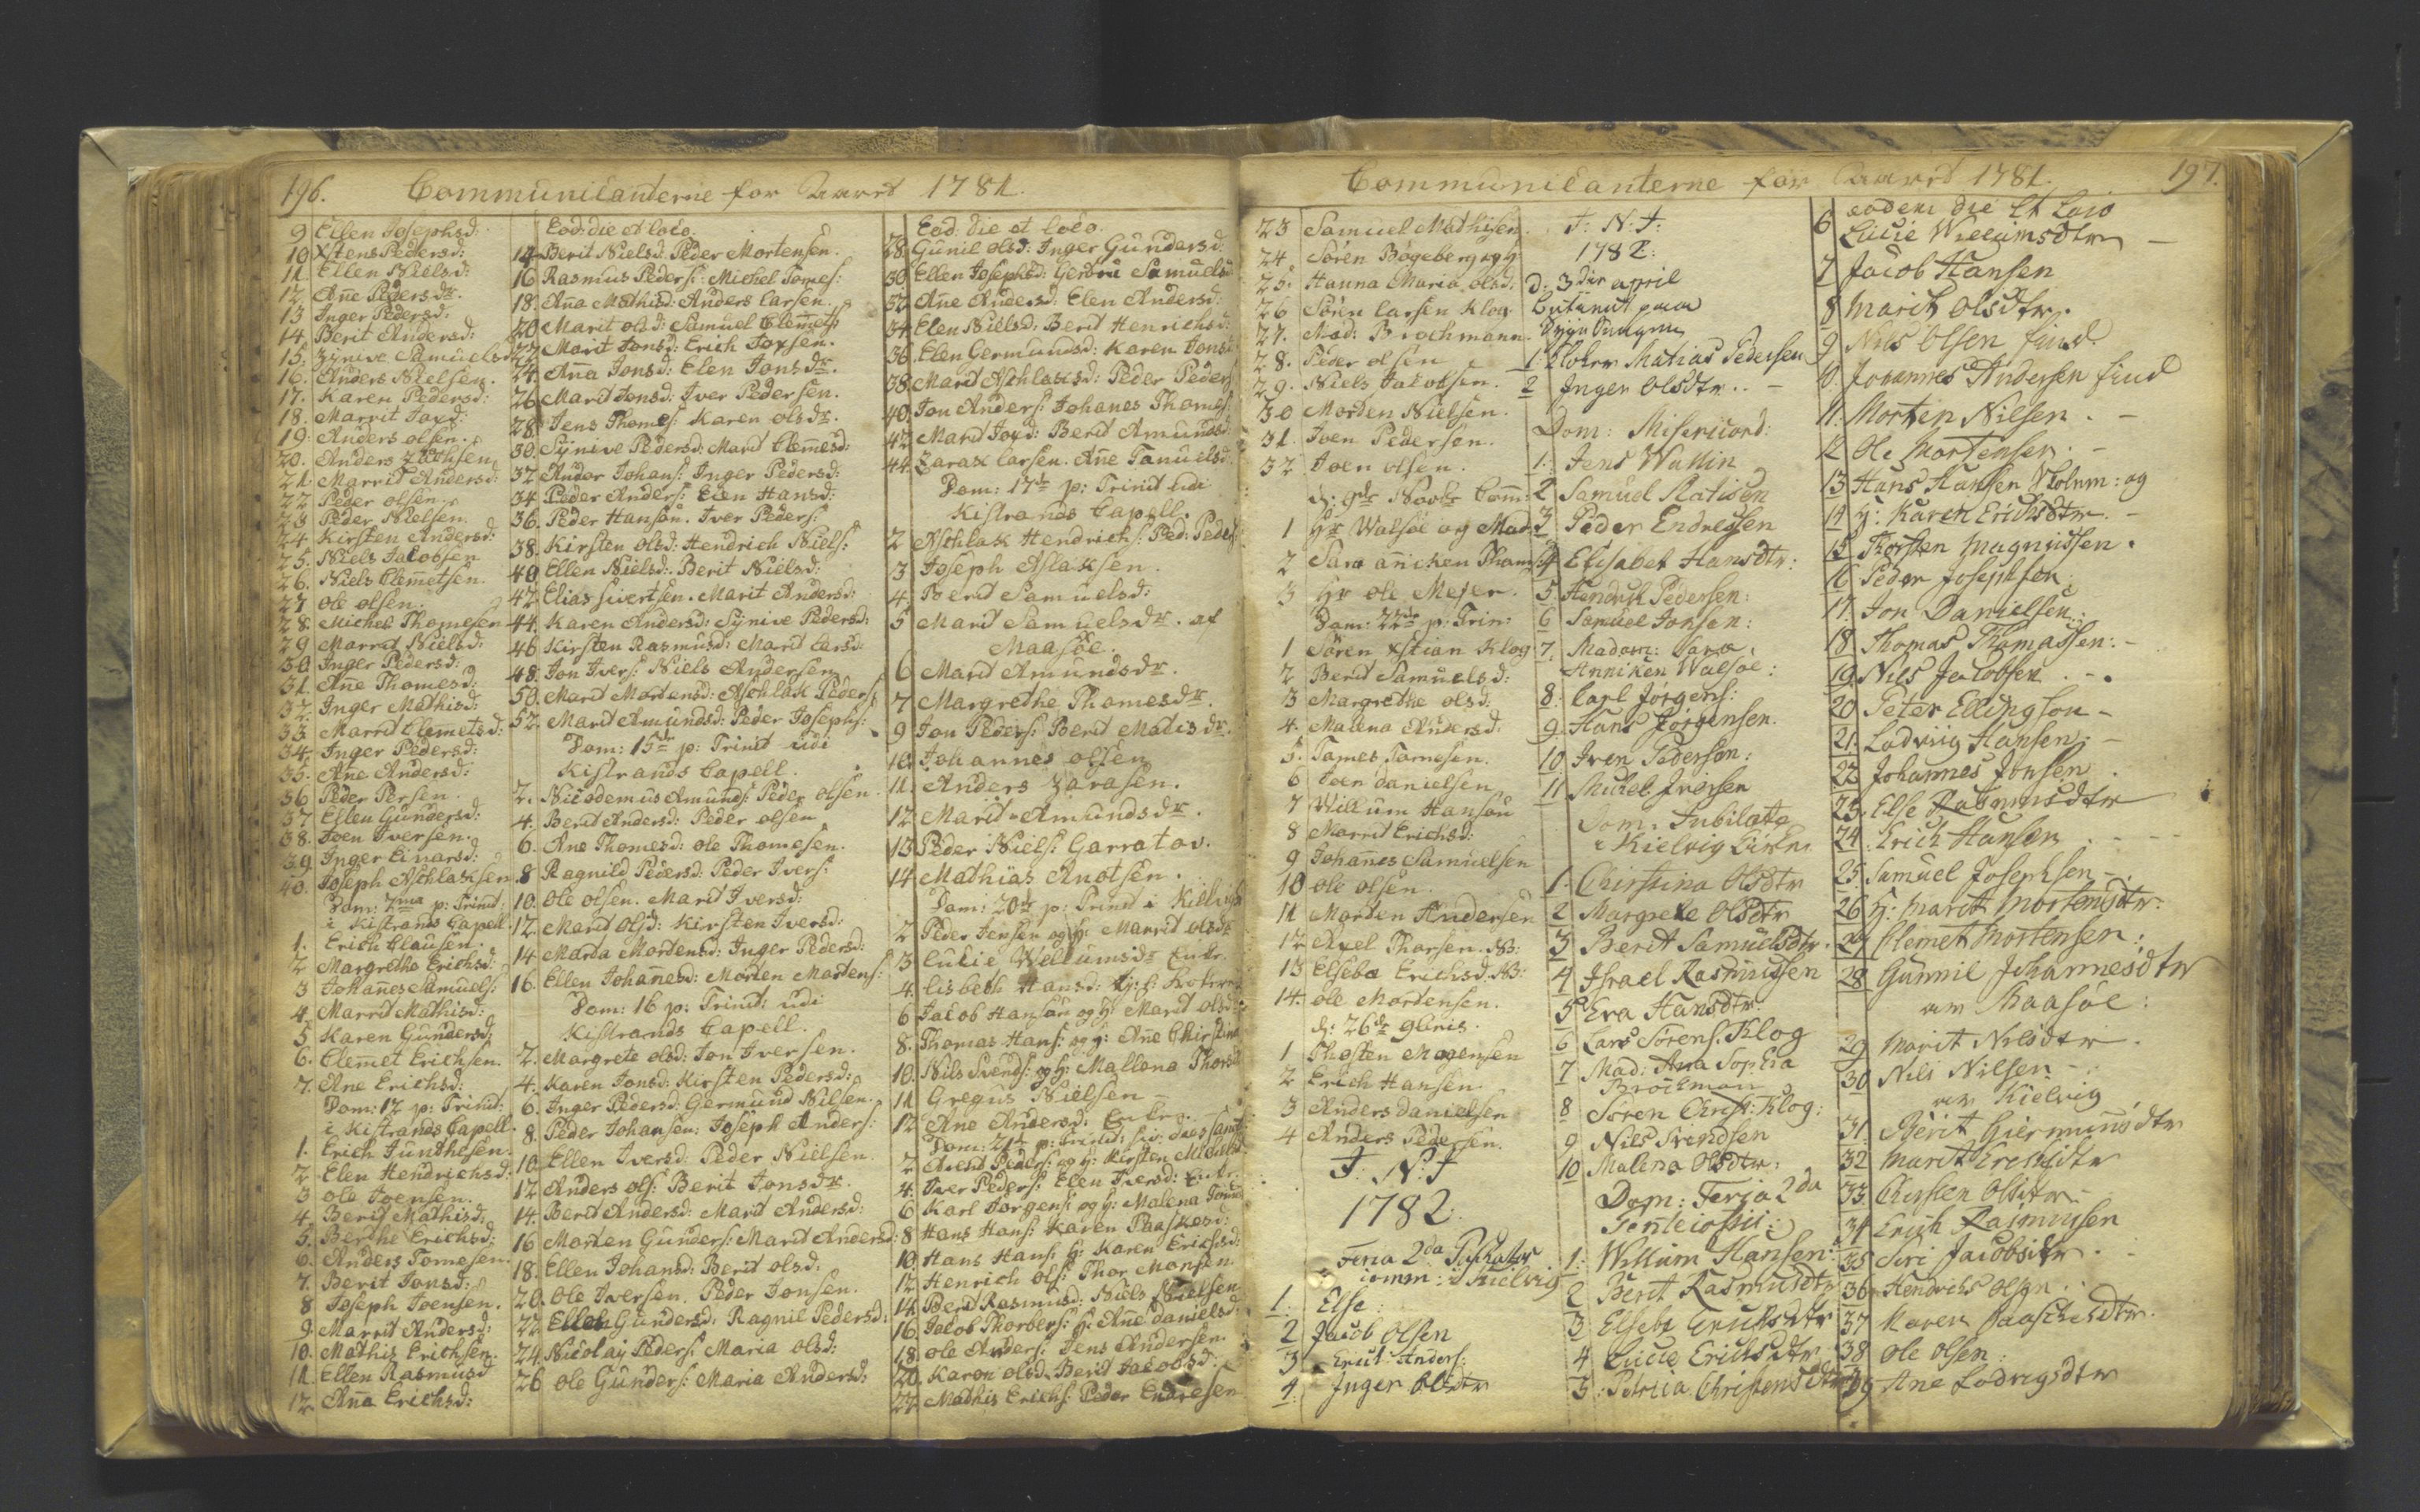 196. Communicanterne for Aaret 1781.
9 Ellen Josephsd:
10 Xstens Pedersd:
11. Ellen Nielsd:
12. Añe Pedersdr.
13 Inger Pedersd:
14. Berit Andersd:
15. Zynive Samuelsd
16. Anders Nielsen.
17. Karen Pedersd:
18. Marrit Joxd:
19. Anders olsen.
20. Anders
21. Marrit Andersd:
22 Peder olsen.
23 Peder Nielsen.
24 Kirsten Andersd:
25. Niels Jacobsen
26. Niels Clem̃etsen.
27 ole olsen.
28. Michel Thomesen
29 Marrit Nielsd:
30 Inger Pedersd:
31. Añe Thomesd:
32. Inger Mathisd:
33 Marrit Clemetsd:
34. Inger Pedersd:
35. Ane Andersd:
36 Peder Persen.
37 Ellen Gundersd:
38. Joen Iversen.
39 Inger Einarsd:
40. Joseph Aschlaksen
Dom: 7ma p: Trinit:
i Kistrands Capell
1. Erich Clausen.
2 Margrethe Erichsd:
3 Johañes Samuels:
4. Marrit Mathisd:
5 Karen Gundersd:
6. Clem̃et Erichsen.
7. Ane Erichsd:
Dom: 12 p: Trinit:
i Kistrands Capell.
1. Erich Junthesen.
2 Elen Hendrichsd:
3 ole Joensen.
4. Berit Mathisd:
5. Berthe Erichsd:
6. Anders Tomesen.
7. Berit Jonsd:
8 Joseph Joensen.
9. Marrit Andersd:
10. Mathis Erichsen.
11. Ellen Rasmusd
12 Aña Erichsd:
Eod: die et loco.
14 Berit Nielsd: Peder Mortensen.
16 Rasmus Peders: Michel Tomes:
18. Aña Mathisd: Anders larsen.
20 Marit olsd: Samuel Clem̃ets
22 Marit Jonsd: Erich Joxsen.
24. Aña Jonsd: Elen Jonsdr.
26 Marit Jonsd: Iver Pedersen.
28 Jens Thomes: Karen olsdr.
30. Synive Pedersd: Marit Clem̃esd:
32 Andar Johans: Inger Pedersd:
34 Peder Anders: Elen Hansd:
36. Peder Hansøn. Iver Peders:
38. Kirsten olsd: Hendrich Niels:
40 Ellen Nielsd: Berit Nielsd:
42 Elias Sivertsen. Marit Andersd:
44. Karen Andersd: Synive Pedersd:
46 Kirsten Rasmusd: Marit larsd:
48. Jon Ivers: Niels Andersen
50. Marit Mortensd: Aschlak Peders:
52. Marit Amundsd: Peder Josephs:
Dom: 15de p: Trinit udi
Kistrands Capell.
2. Nicodemus Amunds: Peder olsen.
4. Berit Andersd: Peder olsen
6. Ane Thomesd: ole Thomesen.
8 Ragnild Pedersd: Peder Ivers:
10. ole olsen. Marit Iversd:
12. Marit Olsd: Kirsten Iversd:
14 Marda Mortensd: Inger Pedersd:
16. Ellen Johañesd: Morten Mortens:
Dom: 16 p: Trinit: udi
Kistrands Capell.
2. Margrete olsd: Jon Iversen.
4. Karen Jonsd: Kirsten Pedersd:
6. Inger Pedersd: Germund Nilsen.
8. Peder Johansen: Joseph Anders:
10 Ellen Iversd: Peder Nielsen.
12 Anders ols: Berit Jonsdr.
14. Berit Andersd: Marit Andersd:
16 Morten Gunders: Marit Andersd:
18. Ellen Johansd: Berit olsd:
20. Ole Iversen. Peder Jonsen.
22 Ellen Gundersd: Ragnil Pedersd:
24. Nicolay Peders: Maria olsd:
26 ole Gunders: Maria Andersd:
Eod: die et loco.
28. Gunil olsd: Inger Gundersd:
30 Ellen Josephsd: Gerdru Samuelsd
32 Añe Andersd: Elen Andersd:
34 Elen Nielsd: Berit Henrichsd:
36. Elen Germundsd: Karen Jonsd
38. Marit Aschlaksd: Peder Peders
40. Jon Anders: Johanes Thomes
42 Marit Joxd: Berit Amundsd:
44. Zarax larsen. Añe Samuelsd.
Dom: 17de p: Trinit udi
Kistrands Capell.
2 Aschlak Hendrichs: Ped: Peders
3 Joseph Aslaksen.
4 Berit Samuelsd:
5 Marit Samuelsdr. af
Maasøe.
6 Marit Amundsdr.
7 Margrethe Thomesdr.
9 Jon Peders: Berit Matisdr.
10. Johannes olsen
11. Anders Zarasen.
12 Marit Amundsdr.
13 Peder Niels: Garratov.
14 Mathias Anotsen.
Dom: 20de p: Trinit i Killvig
2 Peder Jensen og h: Marrit olsdr
3 Lucie Wellumsdr Enke.
4. Lisbeth Hansd:
6 Jacob Hansøn og h: Marit olsd:
8. Thomas Hans: og h: Añe Christina
10. Nils Svends: og h: Mallena Thorsd
11 Gregus Nielsen
12 Ane Andersd: Enke.
Dom: 21de p: Trinit:
2 Arent Peders: og h: Kirsten
4. Iver Peders: Elen Iversd: Enke.
6 Karl Jørgens: og h: Malena
8 Hans Hans: Karen Paaskesd:
10. Hans Hans: h: Karen Erichsd:
12 Henrich ols: Thor Monsen
14 Berit Rasmusd: Niels Nielsen
16. Jacob Thorbers: h: Añe Danielsd:
18. ole Anders: Jens Andersen.
20. Karen olsd. Berit Jacobsd.
22. Mathis Erichs: Peder Endresen
Communicanterne for Aaret 1781. 197.
23 Samuel Mathisen.
24 Søren Bøgeberg og h:
25. Hanna Maria olsd:
26 Søren larsen Klog
27. Mad: Brochmann.
28. Peder olsen
29. Niels Jacobsen.
30 Morten Nielsen.
31. Iven Pedersen.
32 Joen olsen.
d: 9de Novbr Com̃:
1 Hr Walsøe og Mad:
2 Sara añicken Thams
3 Hr ole Mejer.
Dom: 22de p: Trin:
1 Søren Xstian Klog
2 Berit Samuelsd:
3 Margrethe olsd:
4. Malena Andersd.
5. Tames Tomesen.
6 Joen Danielsen
7 Willum Hansøn
8 Marrit Erichsd:
9 Johañes Samuelsen
10 ole olsen.
11 Morten Andersen
12 Axel Thorsen. NB:
13 Elsebe Erichsd. NB:
14. ole Mortensen.
d: 26de 9bris.
1 Thosten Mogensen
2 Erich Hansen.
3 Anders Danielsen
4 Anders Pedersen.
J: N: J
1782.
Feria 2da Paschatos
com̃: i Kielvig
1. Else:
2 Jacob Olsen
3 Erick Anders:
4. Inger Olsdtr
J: N: J:
1782:
d: 3die april
1. Klokr Matias Pedersen
2 Inger Olsdtr.
Dom: Misericord:
1. Jens Wallin
2 Samuel Matisen
3 Peder Endresen
4 Elisabet Hansdtr:
5 Hendrik Pedersen:
6 Samuel Jonsen:
7. Madam: Sara
Anniken Walsøe:
8. Carl Jørgens:
9. Hans Jørgensen.
10 Iven Pedersøn:
11 Michel Iversen
Dom: Jubilate
i Kielvig Kirke
1. Christina Olsdtr
2 Margrete Olsdtr
3 Berit Samuelsdtr.
4 Israel Rasmussen
5 Eva Hansdtr.
6 Lars Sørens: Klog
7 Mad: Ana Sophia
Brockman
8 Søren Christ: Klog:
9 Nils Svendsen
10 Malena Olsdtr:
Dom: Feria 2da
1. Willum Hansen:
2 Berit Rasmusdtr
3 Elsebe Ericksdtr
4 Lucie Ericksdtr
5. Petricia Christensdtr
eodem die et Loco
6 Lucie Willumsdtr
7 Jacob Hansen
8 Marit Olsdtr.
9 Nils Olsen find
10. Johannes Andersen find
11. Morten Nilsen.
12 Ole Mortensen.
13 Hans Hansen Holum: og
14 h: Karen Ericksdtr.
15 Thorsten Magnussen.
16 Peder Josephsen.
17. Jon Danielsen:
18 Thomas Thomassen:
19. Nils Jacobsen
20 Peter Ellingson
21. Lodvig Hansen:
22 Johannes Jonsen
23. Else Rasmusdtr
24. Erich Hansen
25. Samuel Josephsen
26 h: Marit Mortensdtr:
27 Clemet Mortensen:
28 Gunnil Johannesdtr
av Maasøe:
29 Marit Nilsdtr.
30 Nils Nilsen
av Kielvig
31. Berit Giermundsdtr
32 Marit Ericksdtr
33 Chirsten Olsdtr
34 Erich Rasmusen
35 Siri Jacobsdtr.
36. Hendrich Olsen.
37 Karen Paaschesdtr.
38 Ole Olsen:
39 Ane Lodvigsdtr